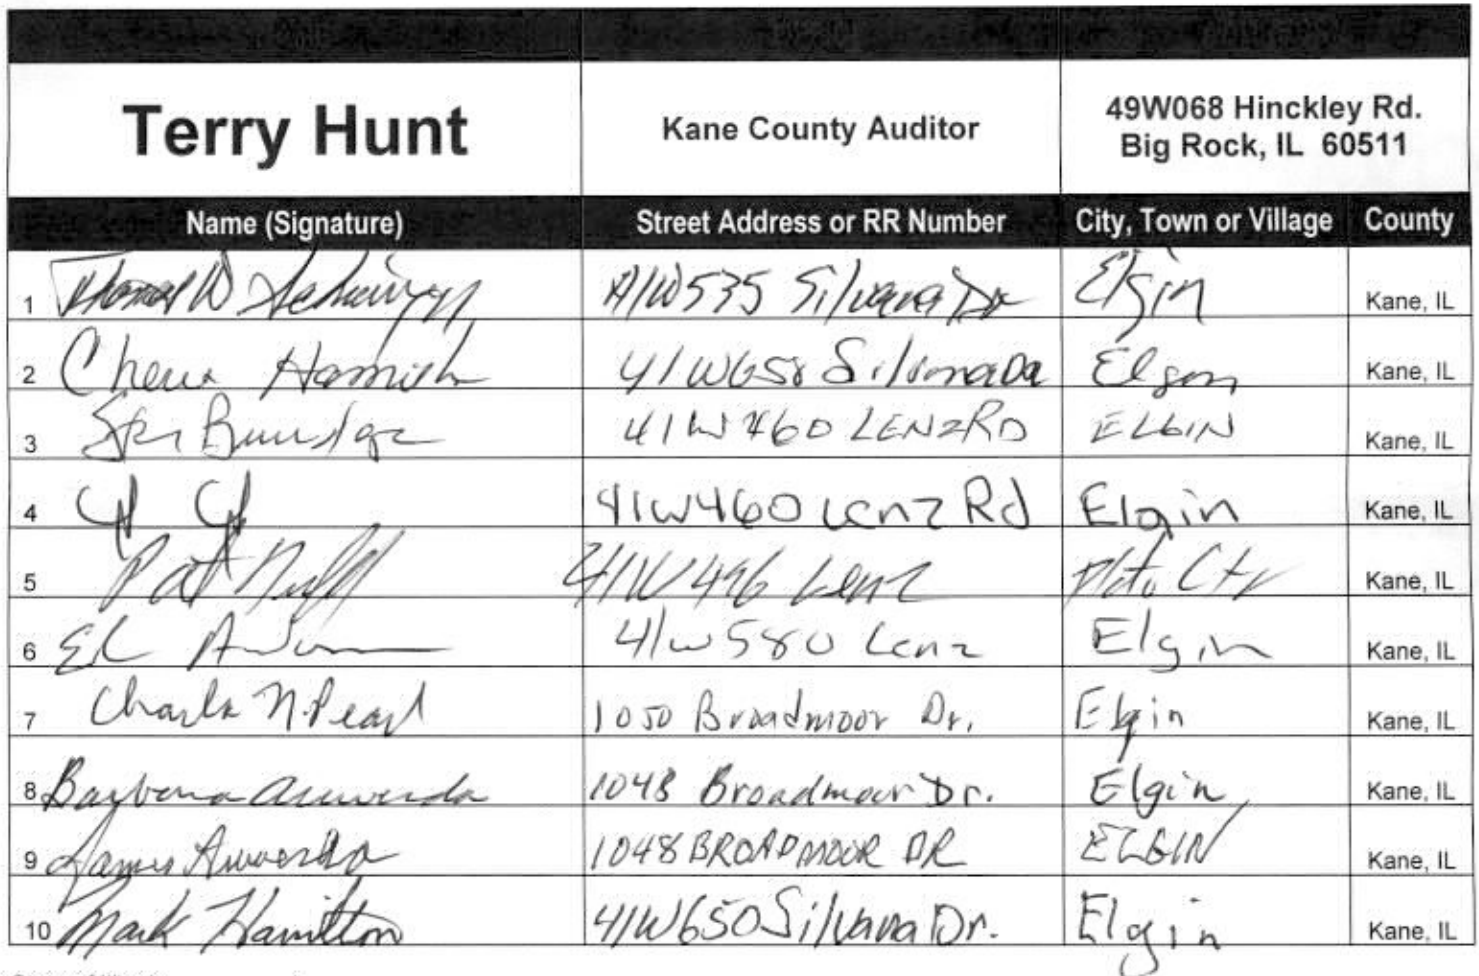 Terry Hunt
Kane County Auditor
49W068 Hinckley Rd.
Big Rock, IL 60511
Name (Signature) Street Address or RR Number City, Town or Village County
1 Thomas W 41W535 Silvana Dr Elgin Kane, IL
2 41W658 Silvana Dr Elgin Kane, IL
3 41W460 LENZ RD ELGIN Kane, IL
4 41W460 Lenz Rd Elgin Kane, IL
5 Pat 41W496 Lenz Plato Ctr Kane, IL
6 41W580 Lenz Elgin Kane, IL
7 N. Pearl 1050 Broadmoor Dr. Elgin Kane, IL
8 Barbara 1048 Broadmoor Dr. Elgin Kane, IL
9 James 1048 BROADMOOR DR ELGIN Kane, IL
10 Mark Hamilton 41W650 Silvana Dr. Elgin Kane, IL